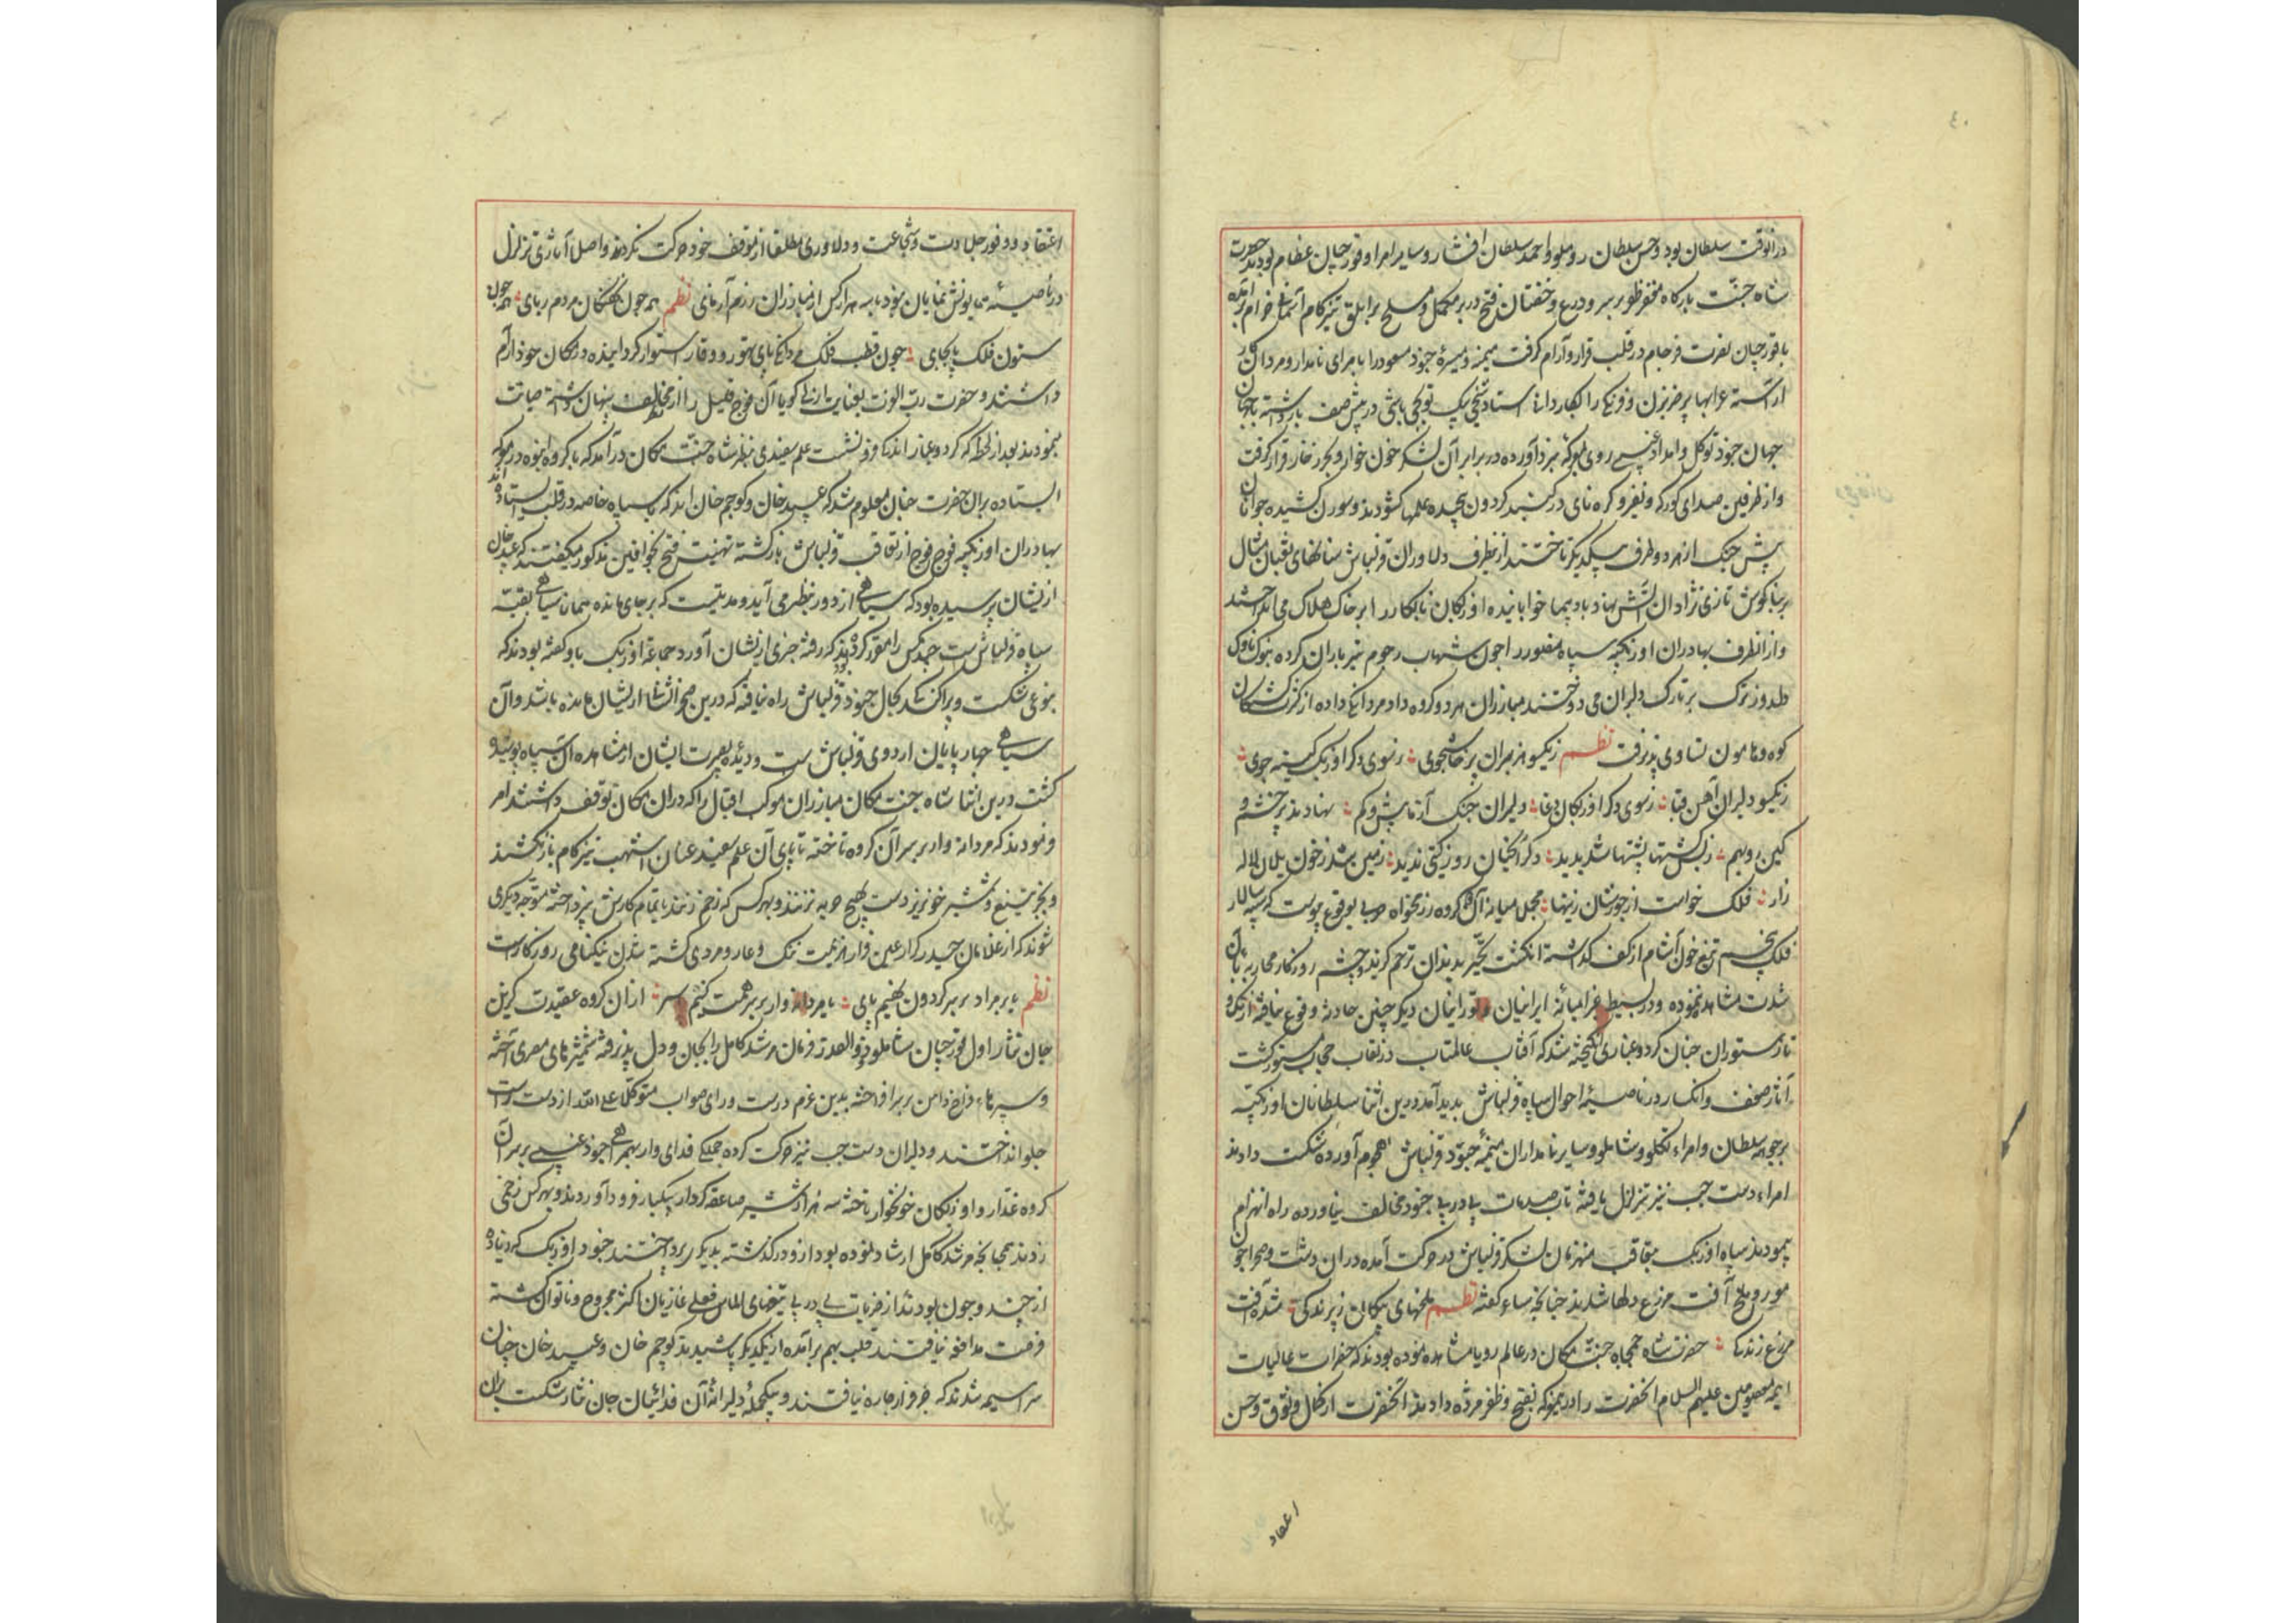 ٤٠
درانوقت سلطان بود و حسن سلطان روملو و احمد سلطان افشار و سایر امرا و قورچیان عظام بودند حضرت
شاه جنت بارگاه مغفر ظفر بر سر و درع و خفتان فتح در بر مکمل و مسلح بر ابلق تیزکام آسمان خرام برآمده
با قورچیان نصرت فرجام در قلب قرار و آرام گرفت میمنه و میسرهٔ جنود مسعود را بامرای نامدار و مردان کار
آراسته عرابهای ضربزن و فرنگی را بکاردانی استاد شیخی بیک توپچی باشی در پیش صف بازداشته با جهان
جهان جنود توکل و امداد غیبی روی بمعرکه نبرد آورده در برابر آن لشکر خون خوار و بحر زخار قرار گرفت
و از طرفین صدای کورکه و نفیر و کره نای در گنبد گردون پیچیده علمها گشودند و سورن کشیده جوانان
پیش جنگ از هر دو طرف بیکدیگر تاختند از نطرف دلاوران قزلباش سنانهای ثعبان مثال
بر بناکوش تازی نژادان آتش نهاد بادپیما خوابانیده اوزبکان نابکار را بر خاک هلاک می انداختند
و از انطرف بهادران اوزبکیه سپاه منصور را چون شهاب رجوم تیر باران کرده بنوک ناوک
دلدوز ترک بر تارک دلیران می دوختند مبارزان هر دو گروه داد مردانگی داده از کثرت کشتگان
کوه و هامون تساوی پذیرفت نظم زیکسو هزبران پرخاشجوی ز سوی دگر اوزبک کینه جوی
زیکسو دلیران آهن قبا ز سوی دگر اوزبکان دغا دلیران جنگ آزما بیش و کم نهادند پر خشم و
کین رو بهم ز بس کشتها پشتها شد پدید دگر آنچنان روز گیتی ندید زمین شد ز خون یلان لاله
زار فلک خواست از جورشان زینهار مجملا میانهٔ آن دو گروه رزمخواه حربی بوقوع پیوست که سپه سالار
فلک پنجم تیغ خون آشام از کف گذاشته انگشت تحیر بدندان ترحم گزید و چشم روزگار محاربه بآن
شدت مشاهد ننموده و در بسیط غبرا میانه ایرانیان و تورانیان دیگر چنین حادثهٔ وقوع نیافته از تک و
تاز ستوران چنان گرد و غباری انگیخته شد که آفتاب عالمتاب در نقاب حجاب مستور گشت
آثار ضعف و انکسار در ناصیهٔ احوال سپاه قزلباش پدید آمد درین اثنا سلطانان اوزبکیه
بر جوهه سلطان و امراء تکلو و شاملو و سایر نامداران میمنهٔ جنود قزلباش هجوم آورده شکست دادند
امراء دست چپ نیز تزلزل یافته تاب صدمات پی در پی جنود مخالف نیاورده راه انهزام
پیمودند سپاه اوزبک بتعاقب منهزمان لشکر قزلباش در حرکت آمده در ان دشت و صحرا چو
مور و ملخ آفت مزرع دلها شدند چنانچه شاعر گفته نظم ملخهای پیکان ز پرندگی شده آفت
مزرع زندگی حضرت شاه جمجاه جنت مکان در عالم رویا مشاهده نموده بودند که حضرات عالیات
ایمه معصومین علیهم السلام انحضرت را درینمعرکه بفتح و ظفر مژده دادند آنحضرت از کمال وثوق و حسن
اعتقاد
اعتقاد و وفور جلادت و شجاعت و دلاوری مطلقا از موقف خود حرکت نکردند و اصلا آثاری تزلزل
در ناصیهٔ همایونش نمایان نبود با سه هزار کس از مبارزان رزم آزمای نظم همه چون نهنگان مردم ربای همه چون
ستون فلک پابجای چون قطب فلک مردانگی پای تهور و وقار استوار گردانیده در مکان خود آرام
داشتند و حضرت رب العزت بعنایت ازلی گویا آن فوج قلیل را از نظر مخالف پنهان داشته صیانت
مینمودند بعد از لحظهٔ که گرد و غبار اندکی فرو نشست علم سفیدی بنظر شاه جنت مکان درآمد که با گروه انبوه در معرکه
ایستاده بران حضرت چنان معلوم شد که عبید خان و کوچم خان اند که با سپاه خاصه در قلب ایستاده اند
بهادران اوزبکیه فوج فوج از تعاقب قزلباش بازگشته تهنیت فتح بخواقین مذکور میگفتند که عبید خان
از ایشان پرسیده بود که سیاهی از دور بنظر می آید و مدتیست که بر جای مانده همانا سیاهی بقیه
سپاه قزلباش است چند کس را مقرر کرد بودند که رفته خبری از یشان آورد جماعة اوزبک باو گفته بودند که
بنوعی شکست و پراکندگی بحال جنود قزلباش راه نیافته که درین صحرا نشانی از یشان مانده باشد و آن
سیاهی چهارپایان اردوی قزلباش است و دیده بصیرت ایشان از مشاهده آن سپاه پوشیده
گشت درین اثنا شاه جنت مکان مبارزان موکب اقبال را که دران مکان توقف داشتند امر
فرمودند که مردانه وار بر سر آن گروه تاخته تا پای آن علم سفید عنان اشهب تیزکام باز نکشند
و بجز تیغ و شمشیر خونریز دست بهیچ حربه نزنند و بهر کس که زخم زنند باتمام کارش نپرداخته متوجه دیگری
شوند که از غلامان حیدر کرار عین فرار هزیمت ننگ و عار و مردی کشته شدن نیکنامی روزگارست
نظم یا بر مراد بر سر گردون نهیم پای یا مردانه وار بر سر همت کنیم سر ازان گروه عقیدت گزین
جان نثار اول قورچیان شاملو و ذوالقدر فرمان مرشد کامل را بجان و دل پذیرفته شمشیرهای مصری آخته
و سپرهای فراخ دامن بر سر افراخته بدین عزم درست و رای صواب متوکلا علی الله از دست راست
جلو انداختند و دلیران دست چپ نیز حرکت کرده جملگی فدای وار بهمراهی جنود غیبی بر سر آن
گروه غدار و اوزبکان خونخوار تاخته سه هزار شمشیر صاعقه کردار بیکبار فرود آوردند و بهر کس زخمی
زدند همچنانچه مرشد کامل ارشاد نموده بود ازو درگذشته بدیگری پرداختند جنود اوزبک که زیاده
از چند و چون بودند از ضربات پی در پی تیغهای الماس فعل غازیان اکثر مجروح و ناتوان گشته
فرصت مدافعه نیافتند قلب بهم برآمده از یکدیگر پاشیدند کوچم خان و عبید خان چنان
سراسیمه شدند که جز فرار چاره نیافتند و بیکحملهٔ دلیرانهٔ آن فدائیان جان نثار شکست بران